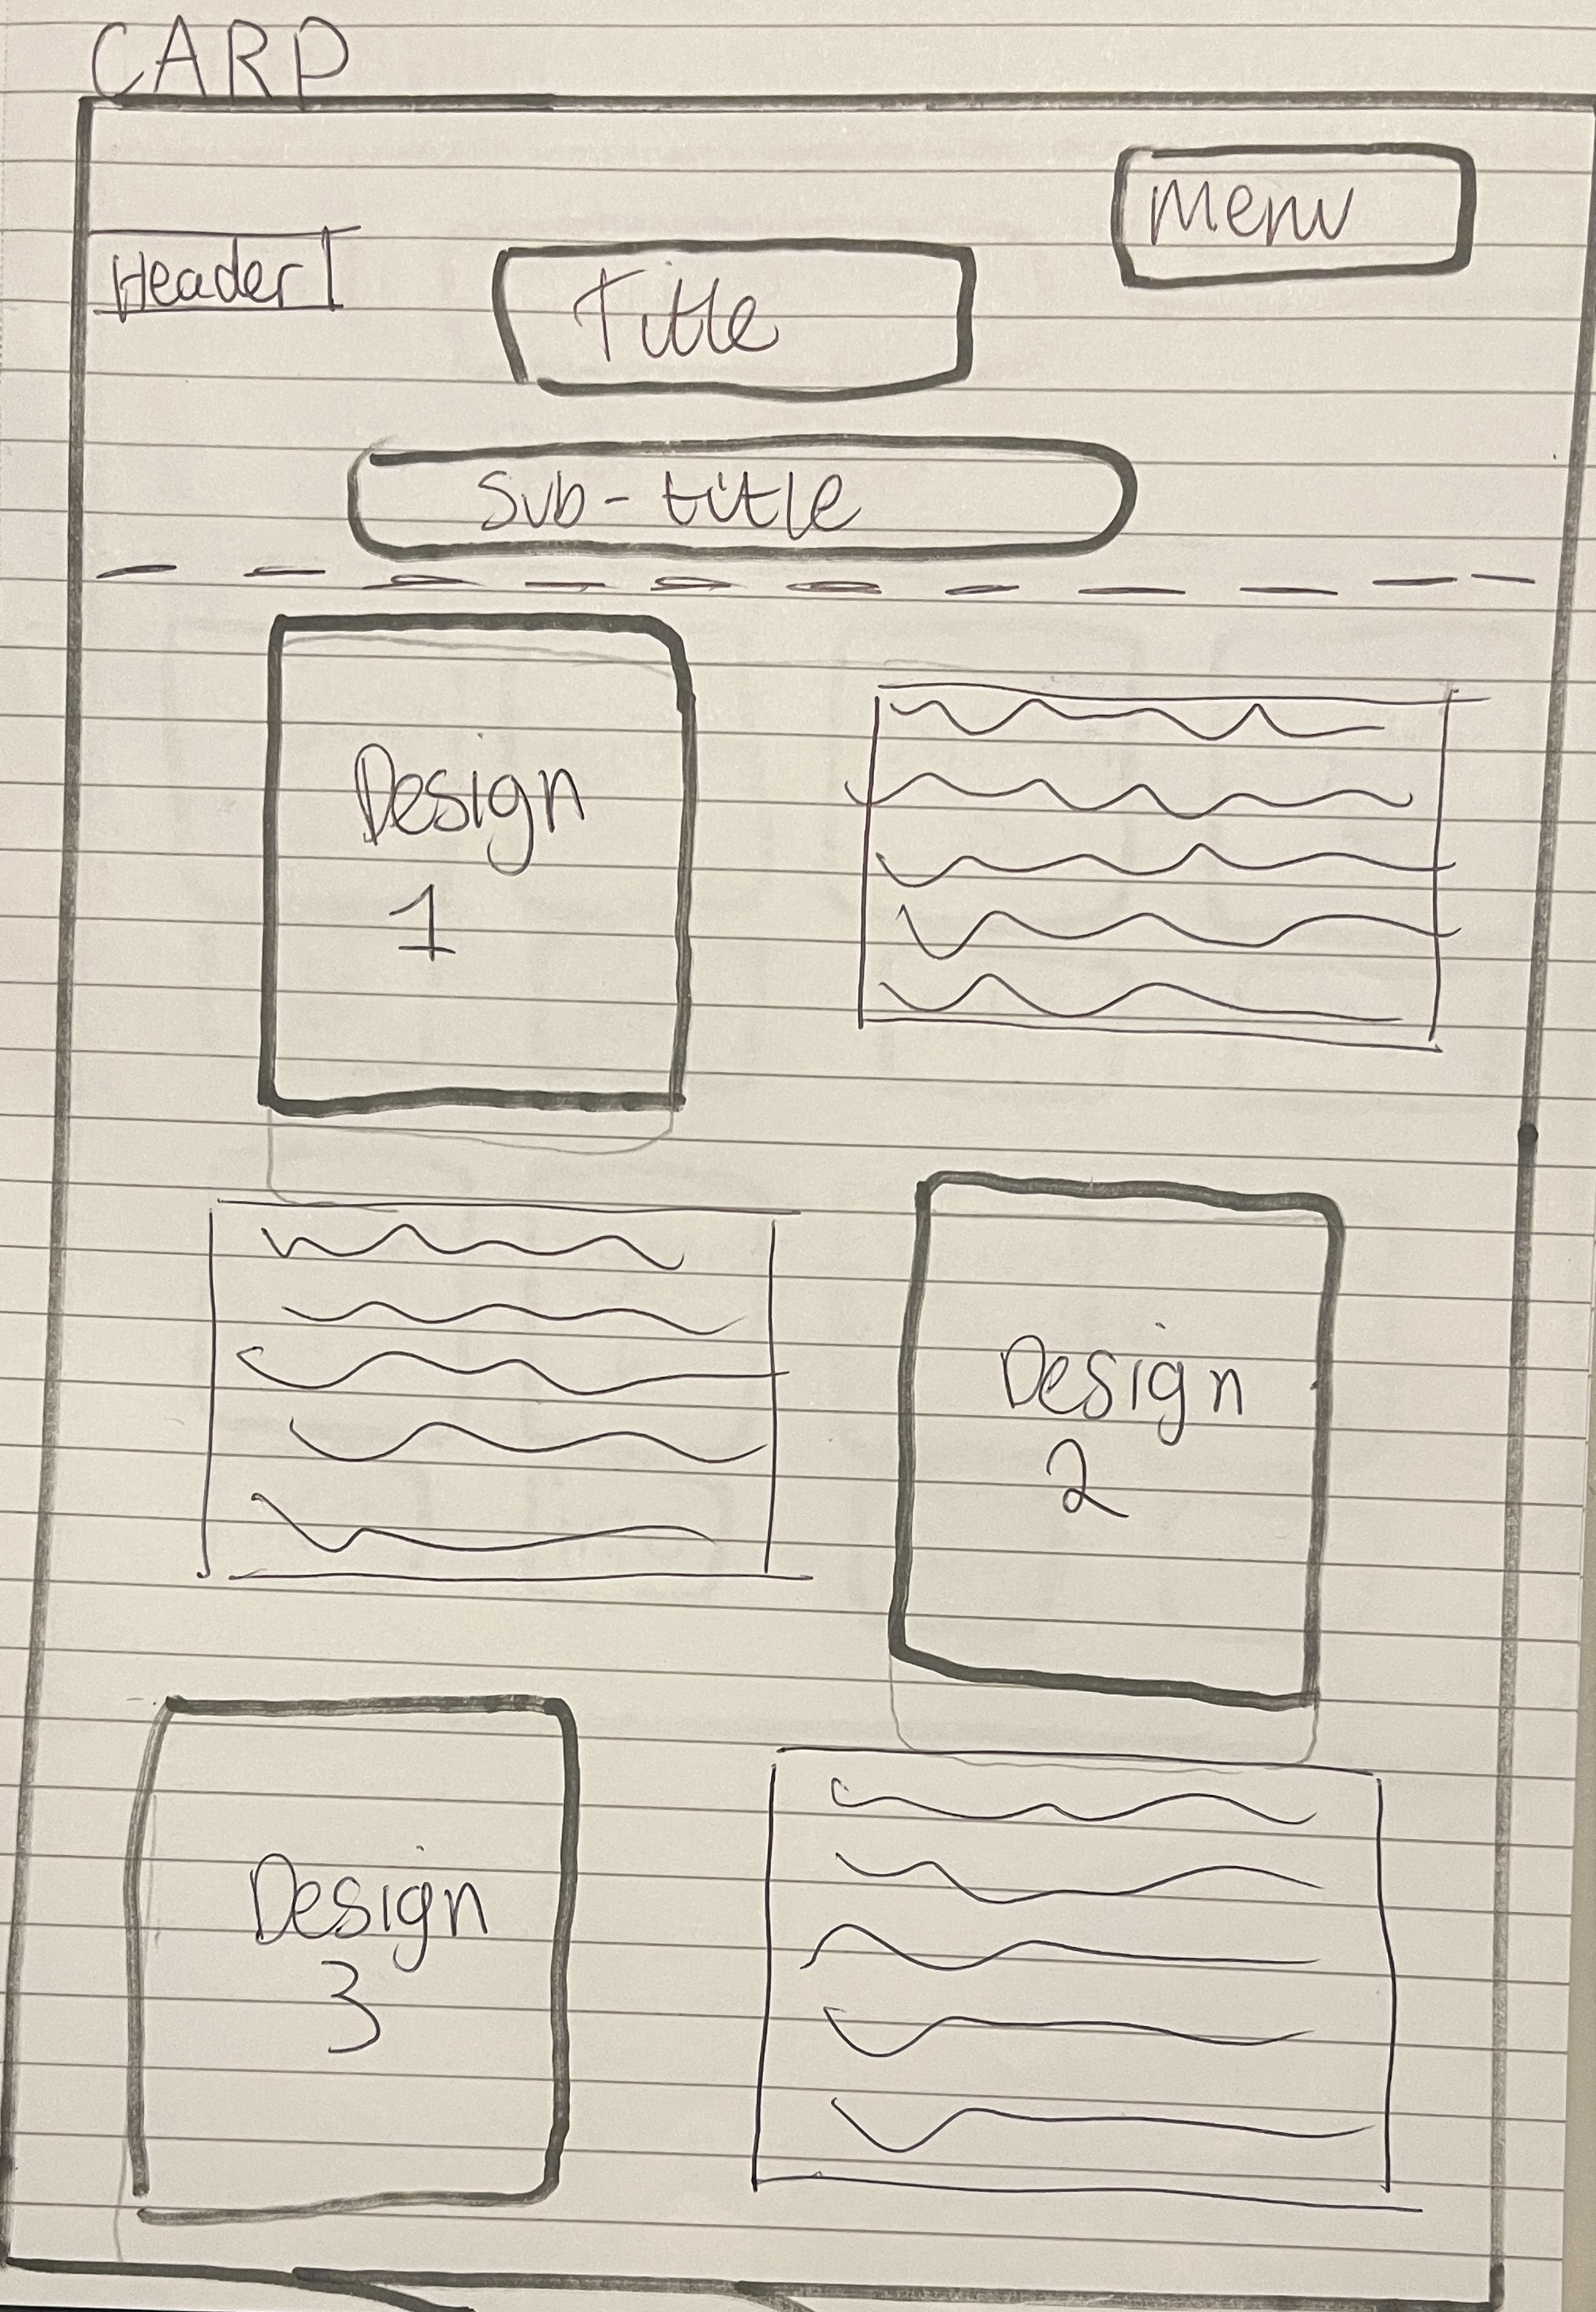 CARP
Menu
Header
Title
Sub-title
Design
1
Design
2
Design
3